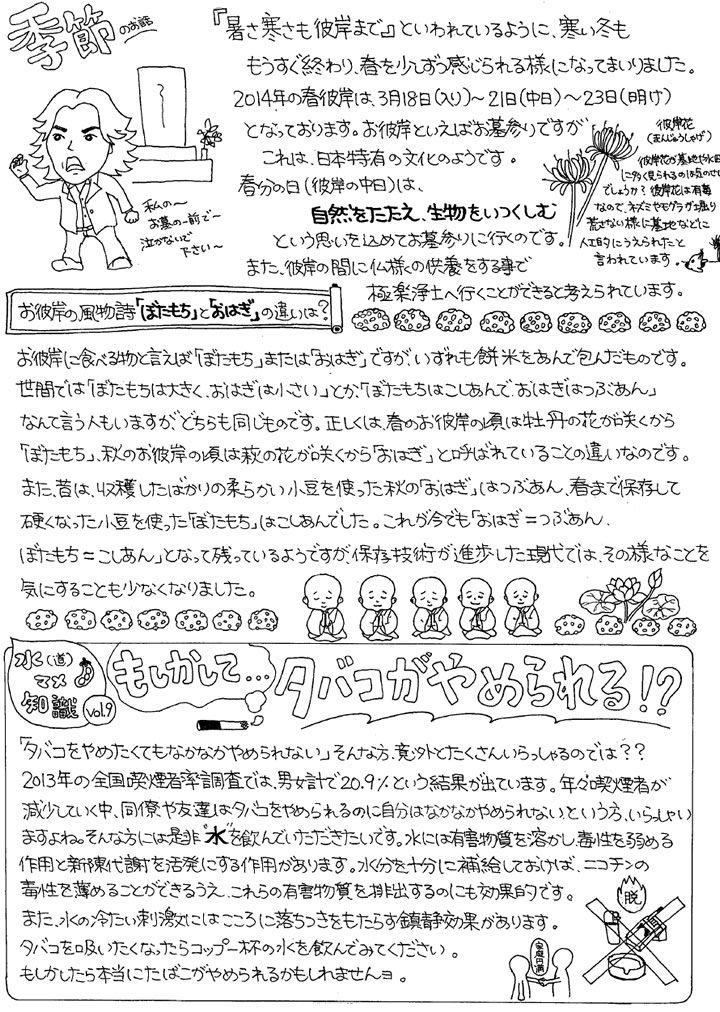 季節のお話
『暑さ寒さも彼岸まで』といわれているように、寒い冬も
もうすぐ終わり、春を少しずつ感じられる様になってまいりました。
2014年の春彼岸は、3月18日(入り)～21日(中日)～23日(明け)
となっております。お彼岸といえばお墓参りですが
これは、日本特有の文化のようです。
春分の日(彼岸の中日)は、
自然をたたえ、生物をいつくしむ
という思いを込めてお墓参りに行くのです。
また、彼岸の間に仏様の供養をする事で
極楽浄土へ行くことができると考えられています。
私の～
お墓の前で～
泣かないで
下さい～
彼岸花
(まんじゅうしゃげ)
彼岸花が墓地や水田
に多く見られるのは気のせい
でしょうか?彼岸花は有毒
なので、ネズミやモグラが掘り
荒さない様に墓地などに
人工的にうえられたと
言われています。
お彼岸の風物詩「ぼたもち」と「おはぎ」の違いは?
お彼岸に食べる物と言えば「ぼたもち」または「おはぎ」ですが、いずれも餅米をあんで包んだものです。
世間では「ぼたもちは大きく、おはぎは小さい」とか、「ぼたもちはこしあんで、おはぎはつぶあん」
なんて言う人もいますが、どちらも同じものです。正しくは、春のお彼岸の頃は牡丹の花が咲くから
「ぼたもち」、秋のお彼岸の頃は萩の花が咲くから「おはぎ」と呼ばれていることの違いなのです。
また、昔は、収穫したばかりの柔らかい小豆を使った秋の「おはぎ」はつぶあん、春まで保存して
硬くなった小豆を使った「ぼたもち」はこしあんでした。これが今でも「おはぎ=つぶあん、
ぼたもち=こしあん」となって残っているようですが、保存技術が進歩した現代では、その様なことを
気にすることも少なくなりました。
水(道)
マメ
知識
vol.9
もしかして…
タバコがやめられる!?
「タバコをやめたくてもなかなかやめられない」そんな方、意外とたくさんいらっしゃるのでは??
2013年の全国喫煙者率調査では、男女計で20.9%という結果が出ています。年々喫煙者が
減少していく中、同僚や友達はタバコをやめられるのに自分はなかなかやめられない、という方、いらっしゃい
ますよね。そんな方には是非"水"を飲んでいただきたいです。水には有害物質を溶かし、毒性を弱める
作用と新陳代謝を活発にする作用があります。水分を十分に補給しておけば、ニコチンの
毒性を薄めることができるうえ、これらの有害物質を排出するのにも効果的です。
また、水の冷たい刺激にはこころに落ちつきをもたらす鎮静効果があります。
タバコを吸いたくなったらコップ一杯の水を飲んでみてください。
もしかしたら本当にたばこがやめられるかもしれませんョ。
脱
家庭円満